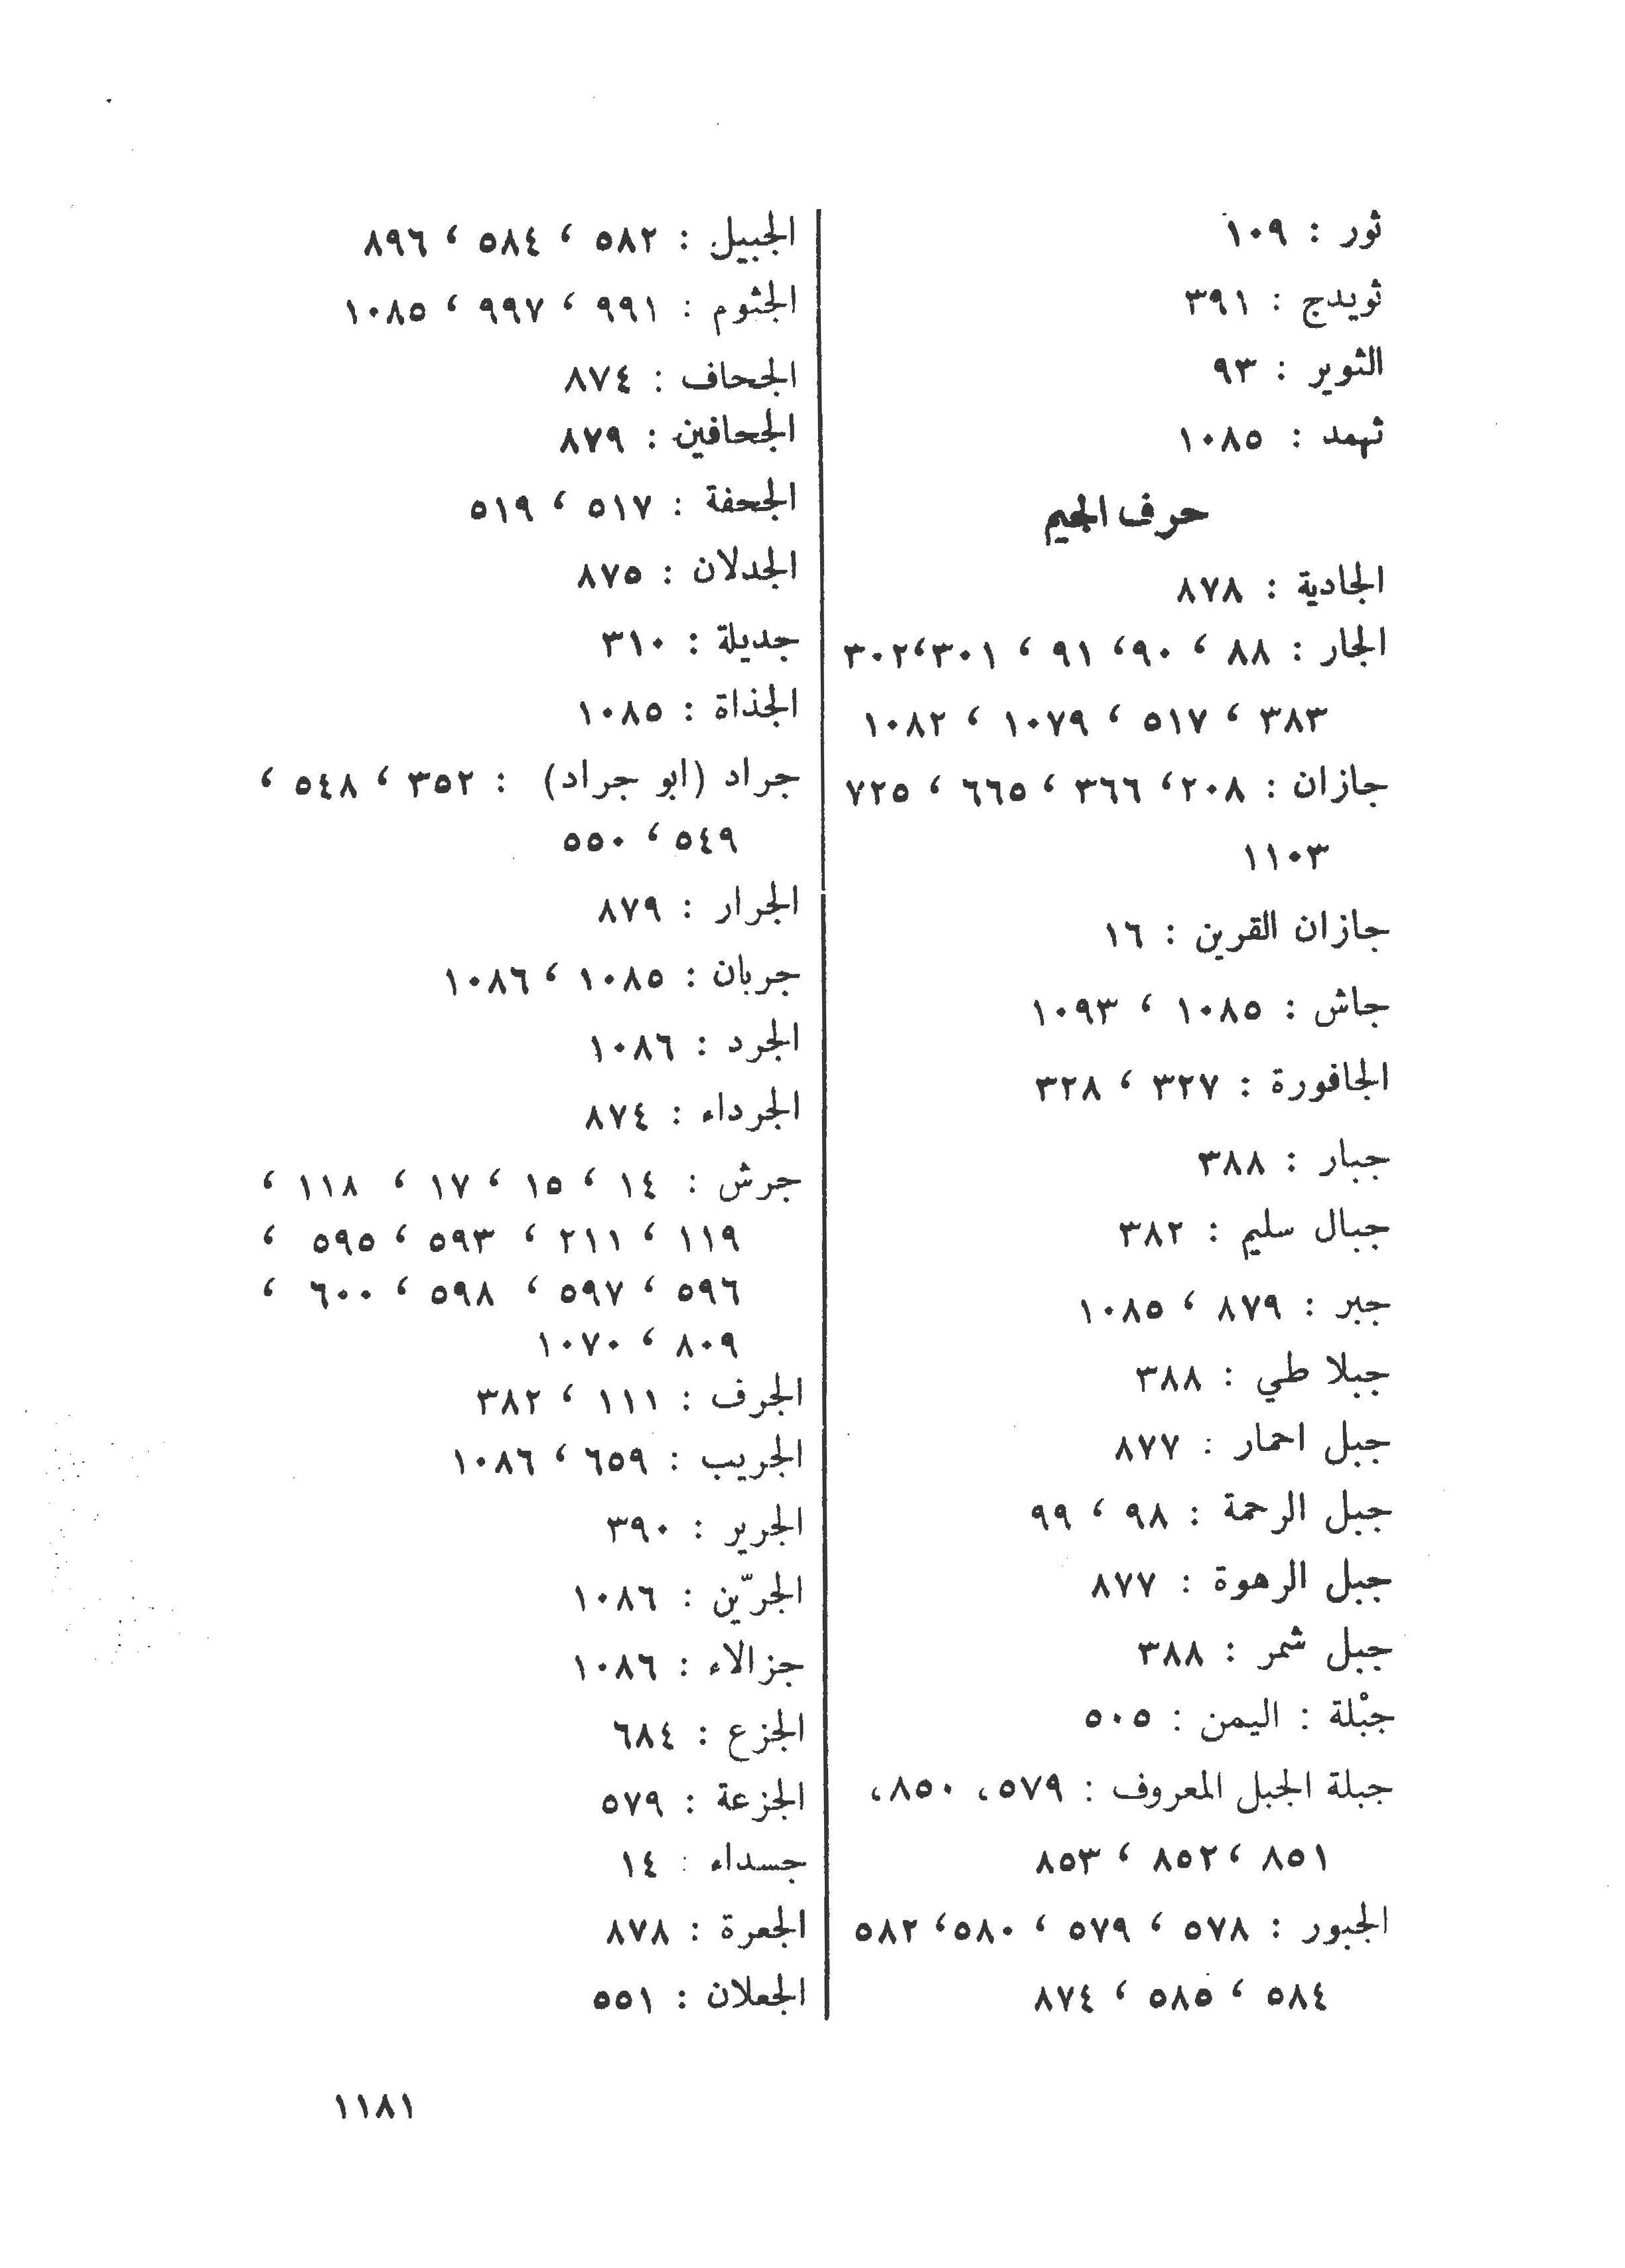 ثور : ١٠٩
ثويدج : ٣٩١
الثوير : ٩٣
ثهمد : ١٠٨٥
حرف الجيم
الجادية : ٨٧٨
الجار : ٨٨ ، ٩٠، ٩١ ، ٣٠١،٣٠٢
٣٨٣ ، ٥١٧ ، ١٠٧٩ ، ١٠٨٢
جازان : ٢٠٨، ٣٦٦ ، ٦٦٥ ، ٧٢٥
١١٠٣
جازان القرين : ١٦
جاش : ١٠٨٥ ، ١٠٩٣
الجافورة : ٣٢٧ ، ٣٢٨
جبار : ٣٨٨
جبال سليم : ٣٨٢
جبر : ٨٧٩ ، ١٠٨٥
جبلا طي : ٣٨٨
جبل احمار : ٨٧٧
جبل الرحمة : ٩٨ ، ٩٩
جبل الرهوة : ٨٧٧
جبل شمر : ٣٨٨
جبْلة : اليمن : ٥٠٥
جبلة الجبل المعروف : ٥٧٩، ٨٥٠،
٨٥١ ،٨٥٢ ، ٨٥٣
الجبور : ٥٧٨ ، ٥٧٩ ، ٥٨٠، ٥٨٢
٥٨٤ ، ٥٨٥ ، ٨٧٤
الجبيل : ٥٨٢ ، ٥٨٤ ، ٨٩٦
الجثوم : ٩٩١ ، ٩٩٧ ، ١٠٨٥
الجحاف : ٨٧٤
الجحافين : ٨٧٩
الجحفة : ٥١٧ ، ٥١٩
الجدلان : ٨٧٥
جديلة : ٣١٠
الجذاة : ١٠٨٥
جراد (ابو جراد) : ٣٥٢ ، ٥٤٨ ،
٥٤٩ ، ٥٥٠
الجرار : ٨٧٩
جربان : ١٠٨٥ ، ١٠٨٦
الجرد : ١٠٨٦
الجرداء : ٨٧٤
جرش : ١٤ ، ١٥ ، ١٧ ، ١١٨ ،
١١٩ ، ٢١١ ، ٥٩٣ ، ٥٩٥ ،
٥٩٦ ، ٥٩٧ ، ٥٩٨ ، ٦٠٠ ،
٨٠٩ ، ١٠٧٠
الجرف : ١١١ ، ٣٨٢
الجريب : ٦٥٩ ، ١٠٨٦
الجرير : ٣٩٠
الجرّين : ١٠٨٦
جزالاء : ١٠٨٦
الجزع : ٦٨٤
الجزعة : ٥٧٩
جسداء : ١٤
الجعرة : ٨٧٨
الجعلان : ٥٥١
١١٨١